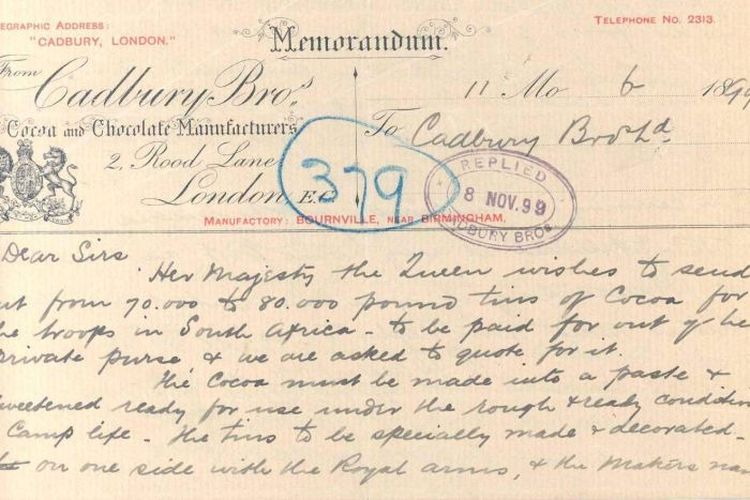 EGRAPHIC ADDRESS:
"CADBURY, LONDON."
Memorandum.
TELEPHONE No. 2313.
From
Cadbury Bros
Cocoa and Chocolate Manufacturers
2, Rood Lane
London, E.C.
MANUFACTORY: BOURNVILLE, NEAR BIRMINGHAM,
379
11 Mo 6 189
To Cadbury Bros Ld
REPLIED
8 NOV. 99
DBURY BROS
Dear Sirs
Her Majesty the Queen wishes to send
ut from 70.000 to 80.000 pound tins of Cocoa for
he troops in South Africa - to be paid for out of he
private purse & we are asked to quote for it.
The Cocoa must be made into a paste &
sweetened ready for use under the rough & ready condition
Camp life - the tins to be specially made & decorated -
on one side with the Royal arms, & the makers nam